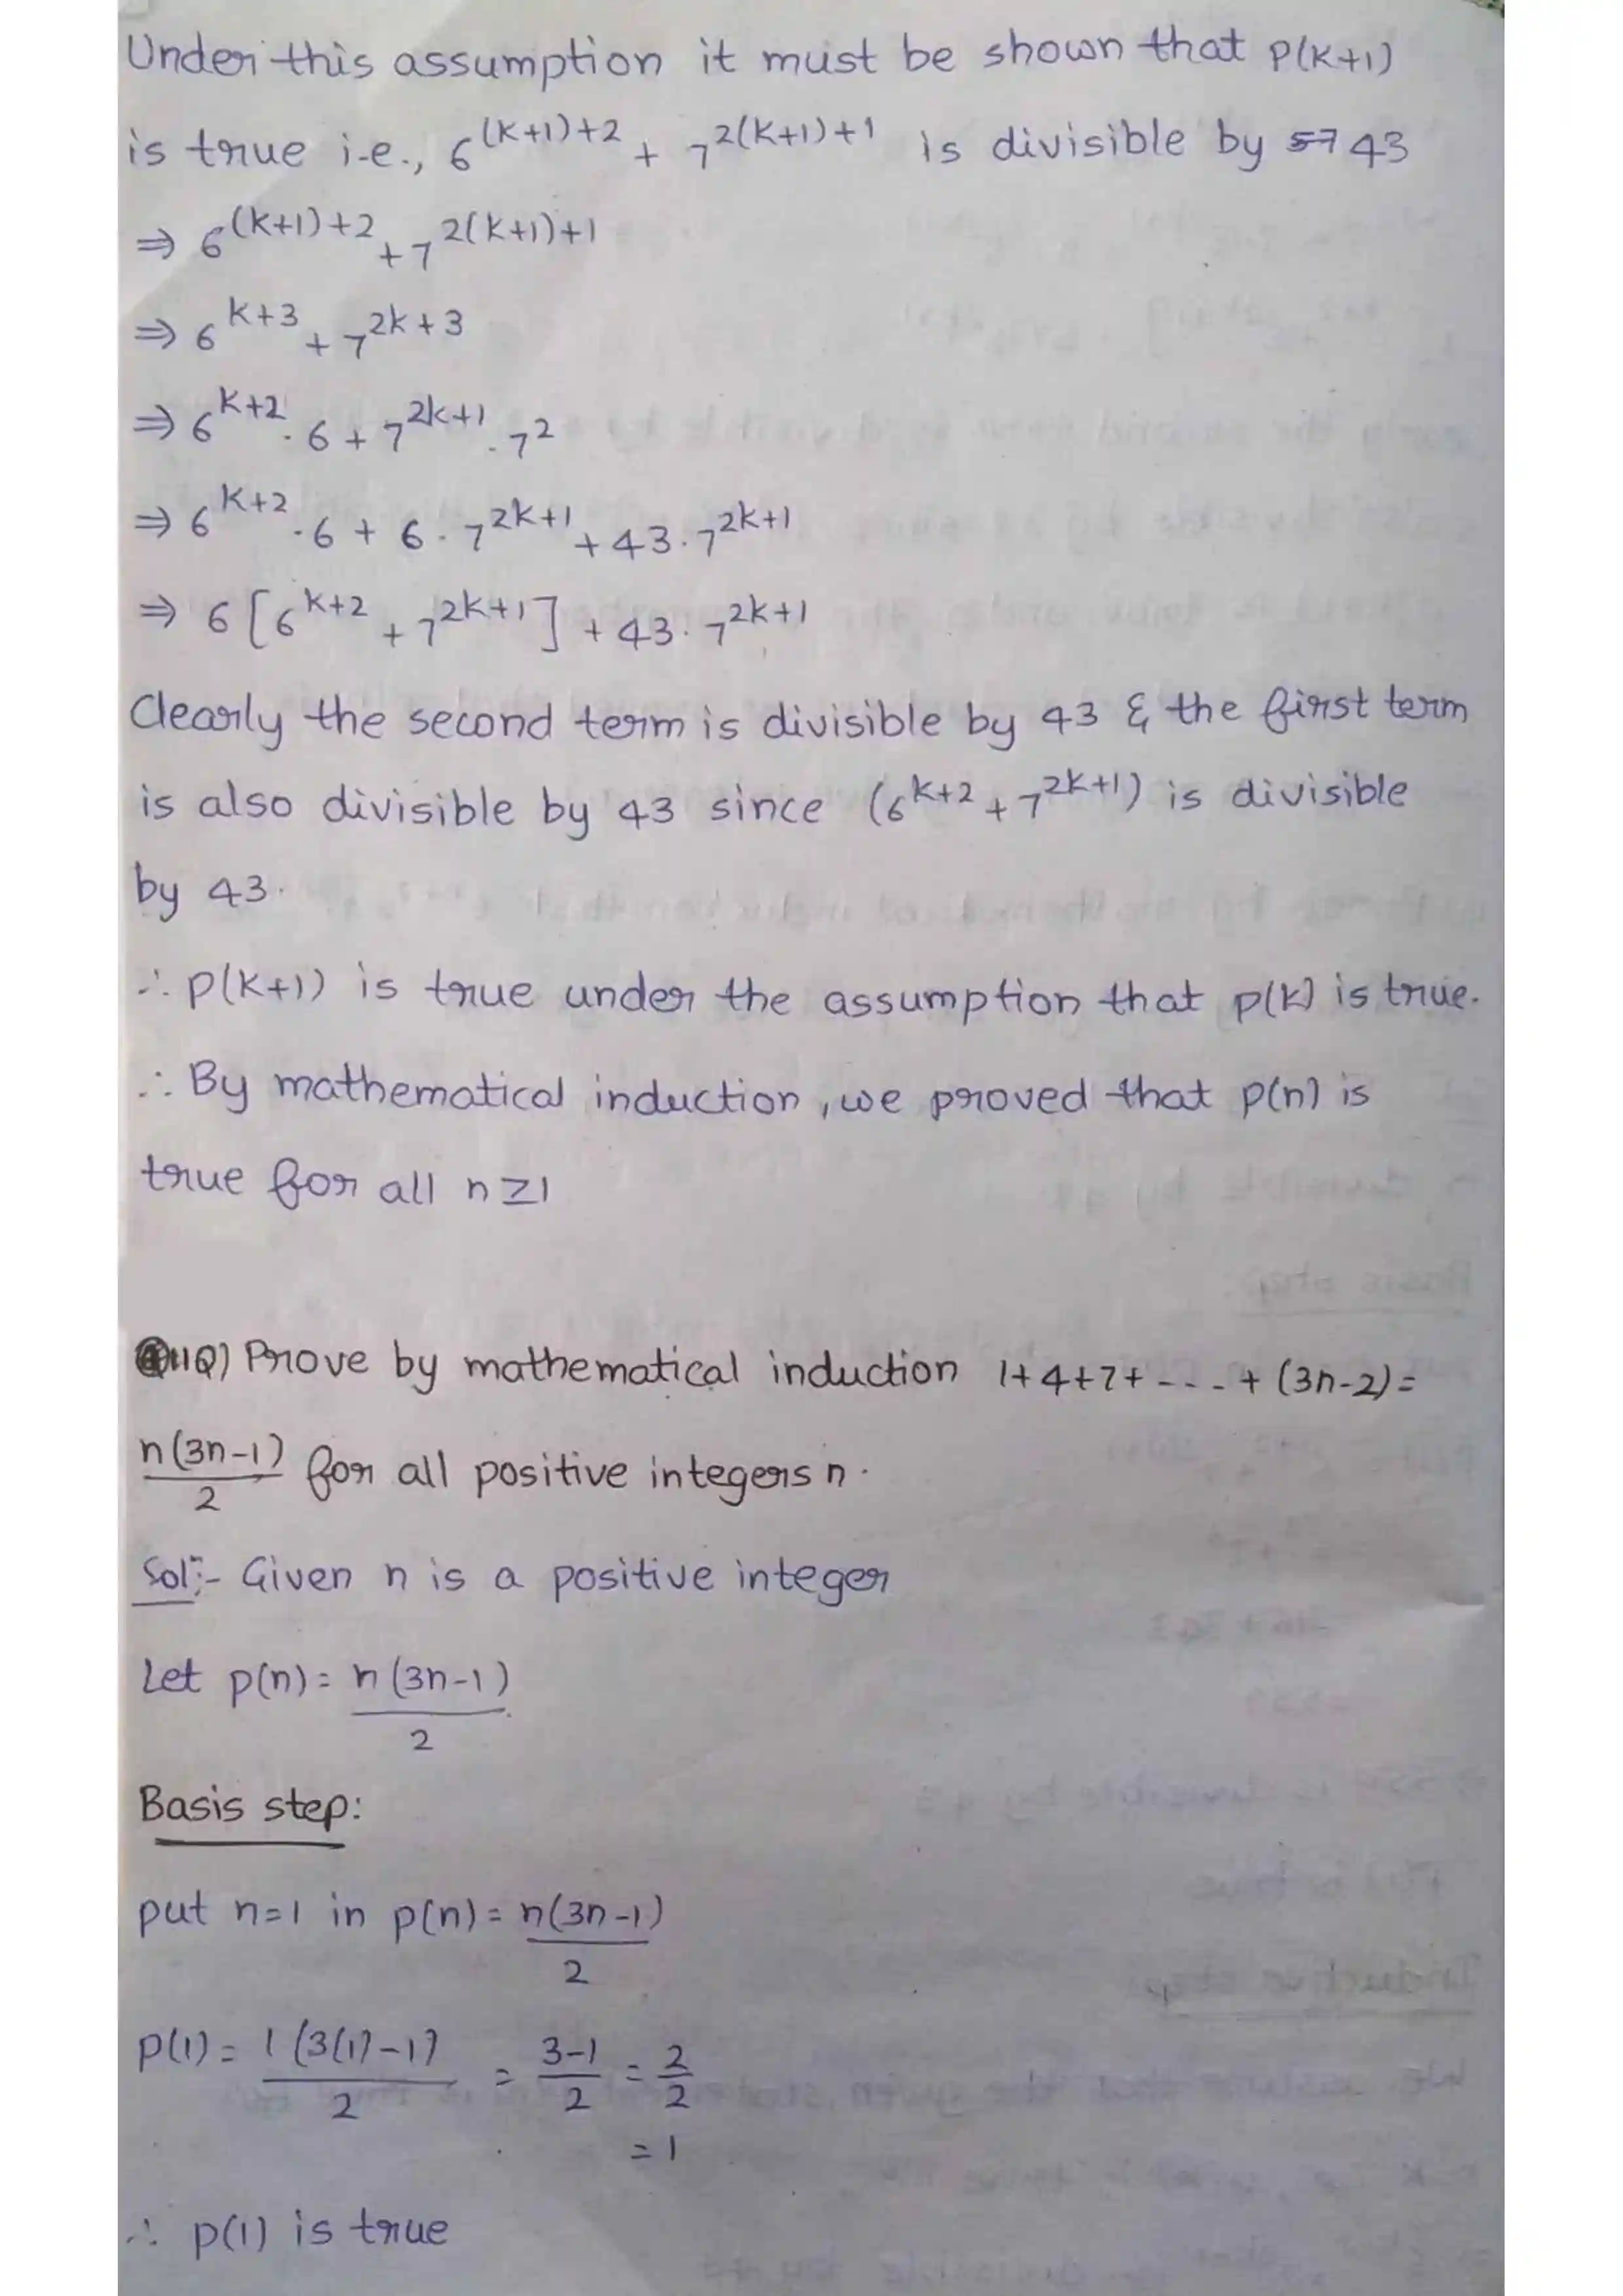 Under this assumption it must be shown that P(K+1)
is true i.e., 6^(K+1)+2 + 7^2(K+1)+1 is divisible by 57 43
⇒ 6^(K+1)+2 + 7^2(K+1)+1
⇒ 6^K+3 + 7^2K+3
⇒ 6^K+2 . 6 + 7^2K+1 . 7^2
⇒ 6^K+2 . 6 + 6 . 7^2K+1 + 43 . 7^2K+1
⇒ 6 [6^K+2 + 7^2K+1] + 43 . 7^2K+1
Clearly the second term is divisible by 43 & the first term
is also divisible by 43 since (6^K+2 + 7^2K+1) is divisible
by 43.
∴ P(K+1) is true under the assumption that P(K) is true.
∴ By mathematical induction, we proved that P(n) is
true for all n≥1
11Q) Prove by mathematical induction 1+4+7+ - - - + (3n-2) =
n(3n-1)/2 for all positive integers n.
Sol:- Given n is a positive integer
Let p(n) = n(3n-1)/2
Basis step:
put n=1 in p(n) = n(3n-1)/2
P(1) = 1(3(1)-1)/2 = 3-1/2 = 2/2
= 1
∴ p(1) is true